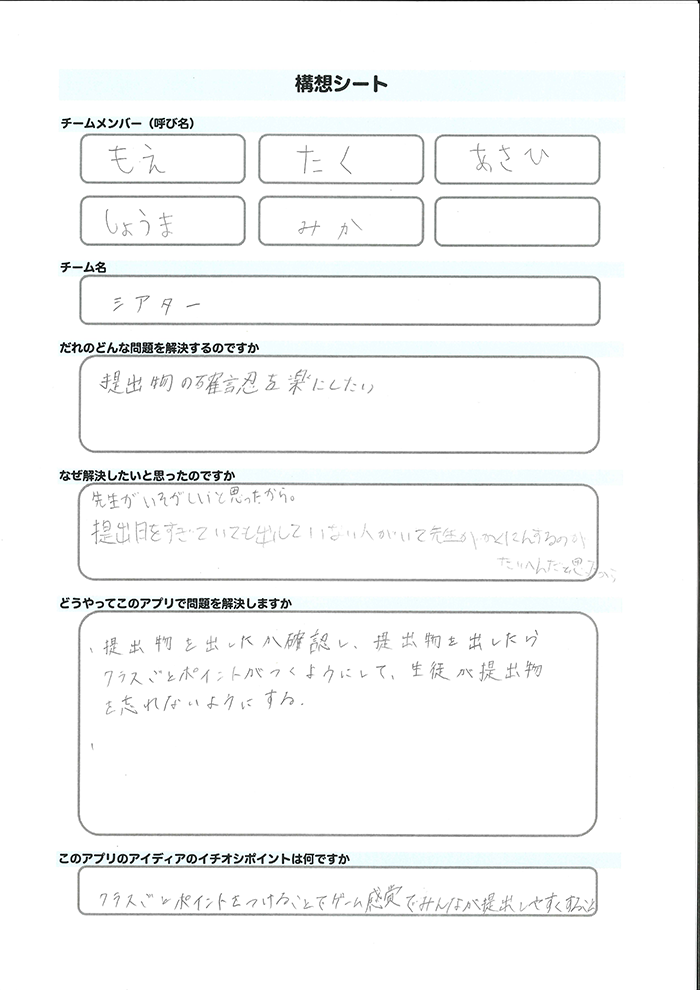 構想シート
チームメンバー（呼び名）
もえ たく あさひ
しょうま みか
チーム名
シアター
だれのどんな問題を解決するのですか
提出物の確認を楽にしたい
なぜ解決したいと思ったのですか
先生がいそがしいと思ったから。
提出日をすぎていても出していない人がいて先生がかくにんするのが
たいへんだと思った
どうやってこのアプリで問題を解決しますか
、提出物を出したか確認し、提出物を出したら
クラスごとポイントがつくようにして、生徒が提出物
を忘れないようにする.
、
このアプリのアイディアのイチオシポイントは何ですか
クラスごとポイントをつけることでゲーム感覚でみんなが提出しやすくすること